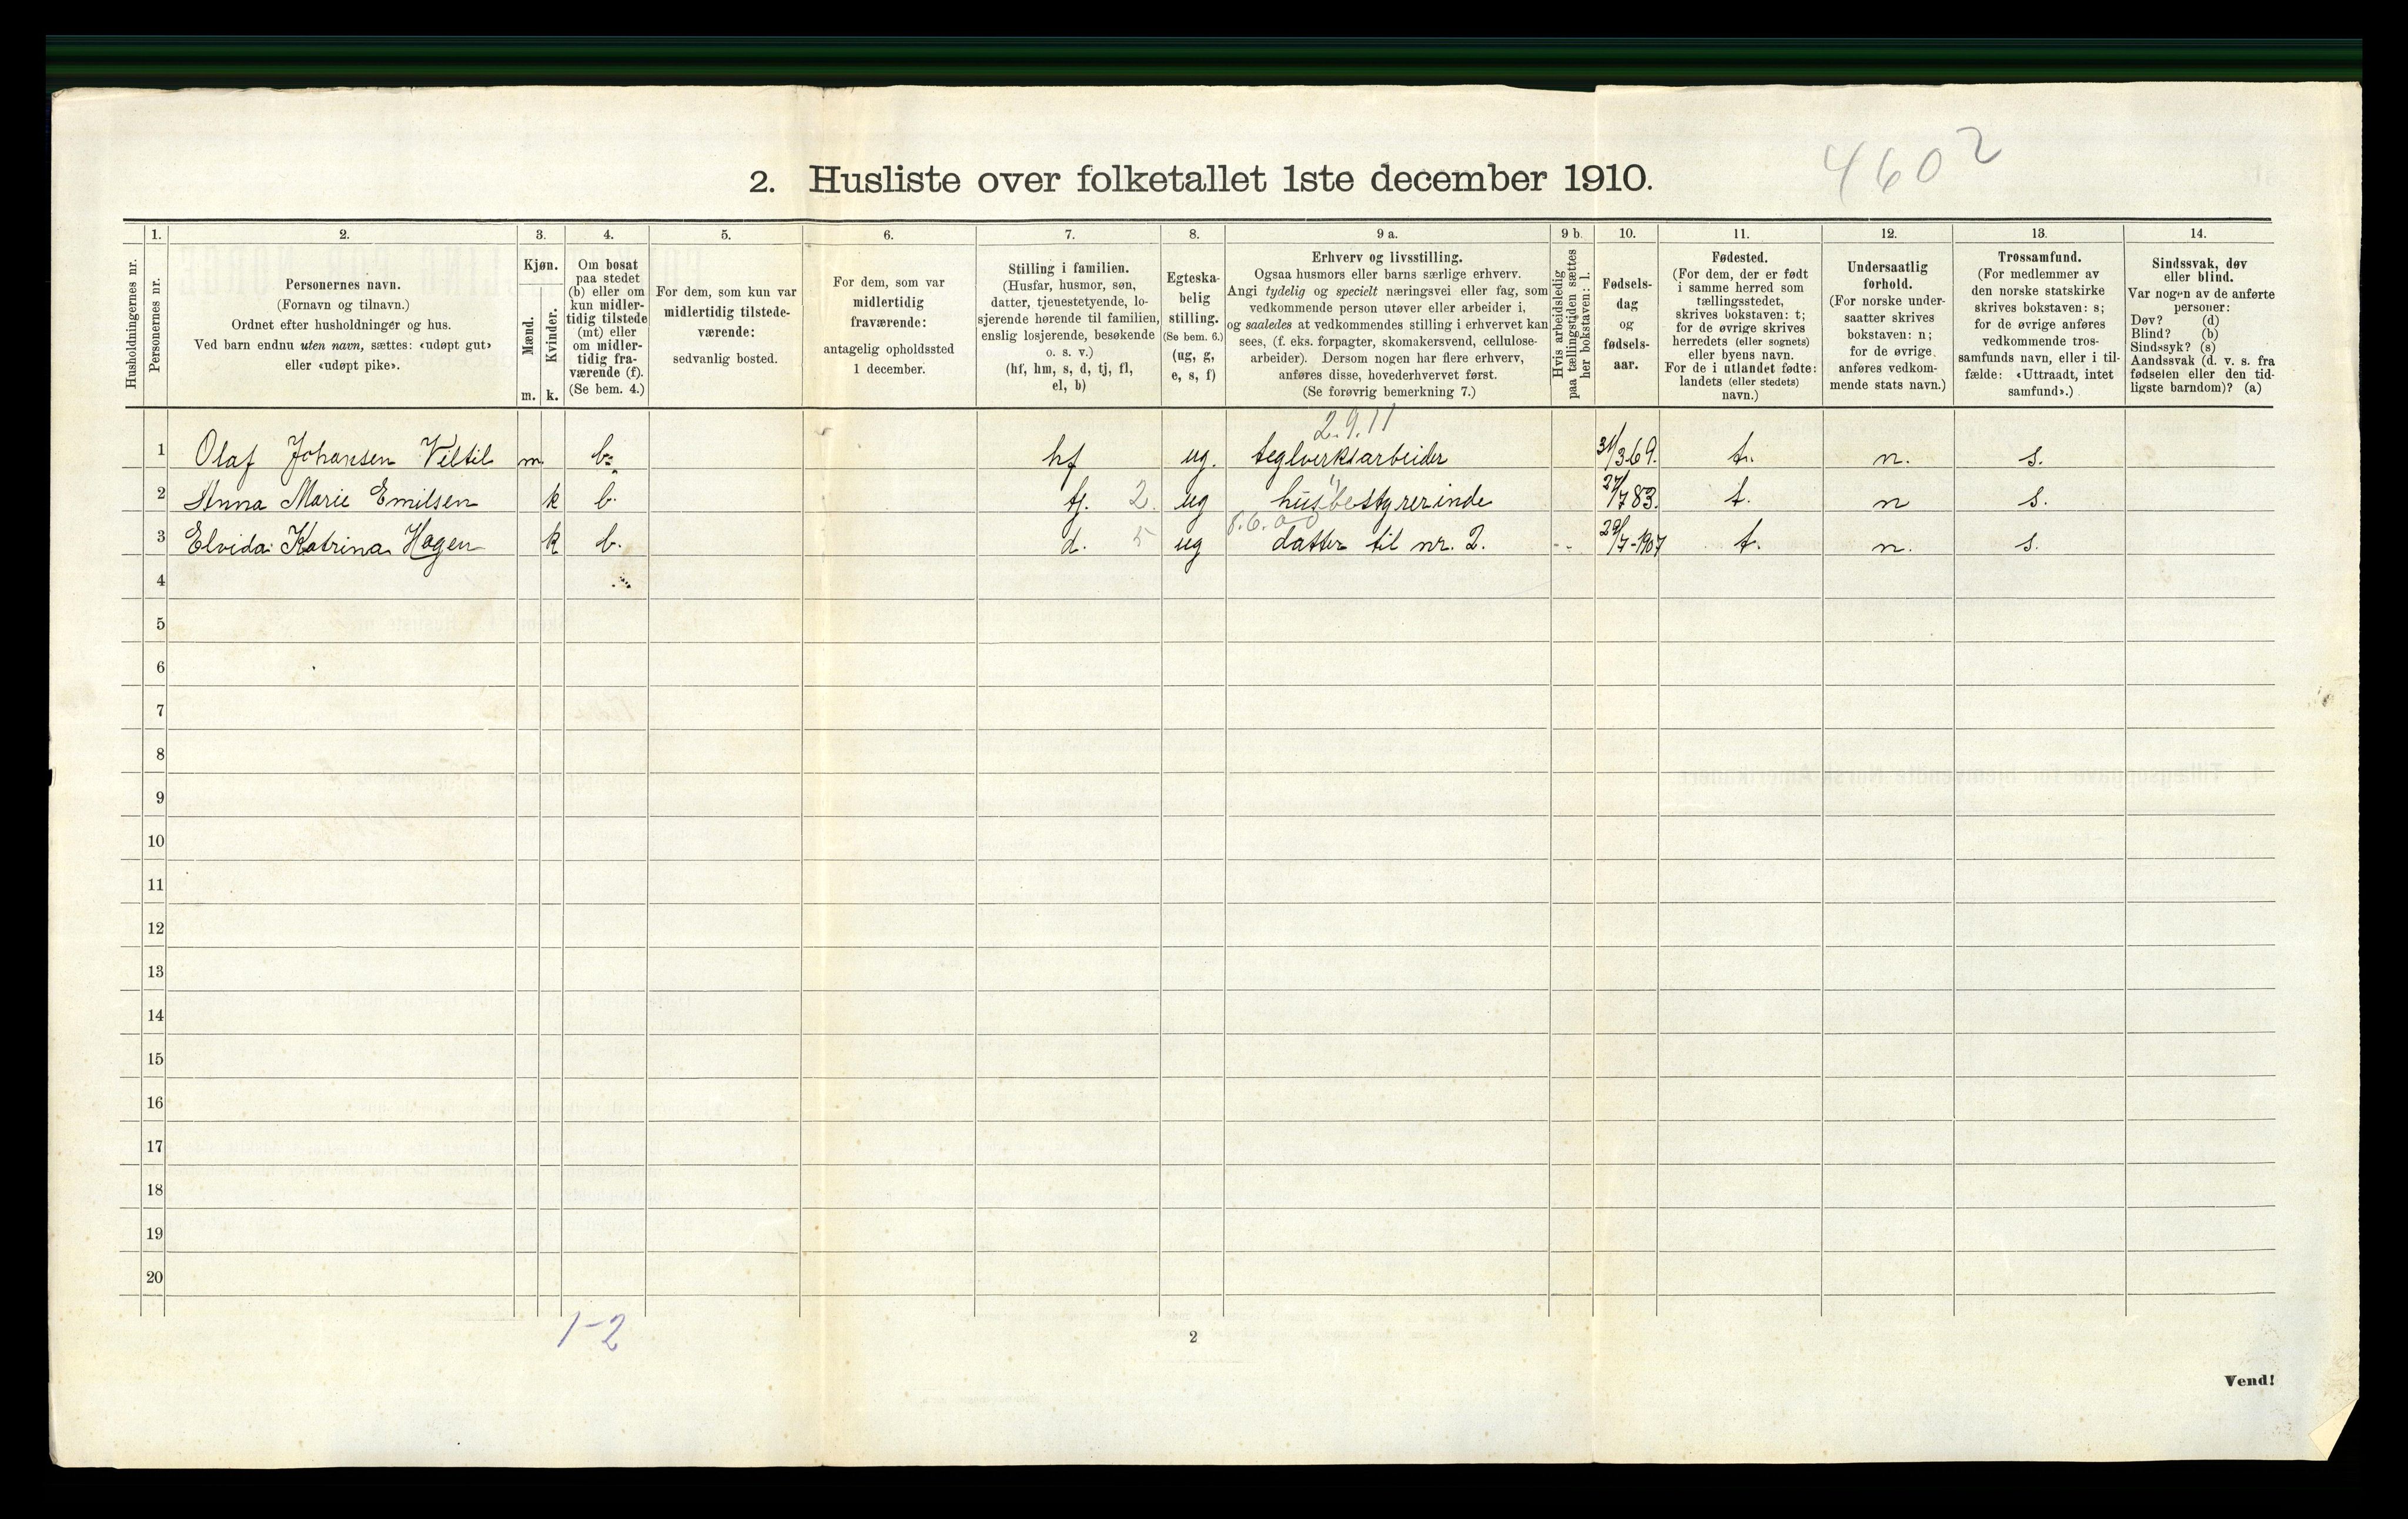 4602
2. Husliste over folketallet 1ste december 1910.
Husholdningernes nr.
1.
Personernes nr.
2.
Personernes navn.
(Fornavn og tilnavn.)
Ordnet efter husholdninger og hus.
Ved barn endnu uten navn, sættes: «udøpt gut»
eller «udøpt pike».
3.
Kjøn.
Mænd.
Kvinder.
m. k.
4.
Om bosat
paa stedet
(b) eller om
kun midler-
tidig tilstede
(mt) eller
om midler-
tidig fra-
værende (f).
(Se bem. 4.)
5.
For dem, som kun var
midlertidig tilstede-
værende:
sedvanlig bosted.
6.
For dem, som var
midlertidig
fraværende:
antagelig opholdssted
1 december.
7.
Stilling i familien.
(Husfar, husmor, søn,
datter, tjenestetyende, lo-
sjerende hørende til familien,
enslig losjerende, besøkende
o. s. v.)
(hf, hm, s, d, tj, fl,
el, b)
8.
Egteska-
belig
stilling.
(Se bem. 6.)
(ug, g,
e, s, f)
9 a.
Erhverv og livsstilling.
Ogsaa husmors eller barns særlige erhverv.
Angi tydelig og specielt næringsvei eller fag, som
vedkommende person utøver eller arbeider i,
og saaledes at vedkommendes stilling i erhvervet kan
sees, (f. eks. forpagter, skomakersvend, cellulose-
arbeider). Dersom nogen har flere erhverv,
anføres disse, hovederhvervet først.
(Se forøvrig bemerkning 7.)
9 b.
Hvis arbeidsledig
paa tællingstiden sættes
her bokstaven: l.
10.
Fødsels-
dag
og
fødsels-
aar.
11.
Fødested.
(For dem, der er født
i samme herred som
tællingsstedet,
skrives bokstaven: t;
for de øvrige skrives
herredets (eller sognets)
eller byens navn.
For de i utlandet fødte:
landets (eller stedets)
navn.)
12.
Undersaatlig
forhold.
(For norske under-
saatter skrives
bokstaven: n;
for de øvrige
anføres vedkom-
mende stats navn.)
13.
Trossamfund.
(For medlemmer av
den norske statskirke
skrives bokstaven: s;
for de øvrige anføres
vedkommende tros-
samfunds navn, eller i til-
fælde: «Uttraadt, intet
samfund».)
14.
Sindssvak, døv
eller blind.
Var nogen av de anførte
personer:
Døv? (d)
Blind? (b)
Sindssyk? (s)
Aandssvak (d. v. s. fra
fødselen eller den tid-
ligste barndom)? (a)
2.9.11
1 Olaf Johansen Viltil m. b. hf ug. teglverksarbeider 31/3 69. t. n. s.
2 Anna Marie Emilsen k b. tj. 2. ug husbestyrerinde 27/7 83. t. n s.
3 Elvida Katrina Hagen k b. d. 5 ug datter til nr. 2. 29/7-1907 t. n. s.
4
5
6
7
8
9
10
11
12
13
14
15
16
17
18
19
20
1-2
2
Vend!